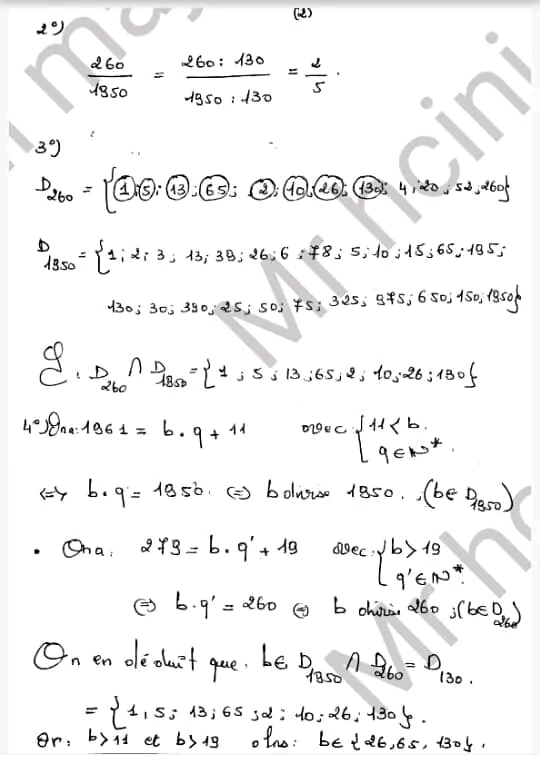 (2)
2°)
260/1950 = 260 : 130 / 1950 : 130 = 2/5 .
3°)
D260 = {1; 5; 13; 65; 2; 10; 26; 130; 4; 20; 52; 260}
D1950 = {1; 2; 3; 13; 39; 26; 6; 78; 5; 10; 15; 65; 195;
130; 30; 390; 25; 50; 75; 325; 975; 650; 150; 1950}
D260 ∩ D1950 = {1; 5; 13; 65; 2; 10; 26; 130}
4°) On a: 1961 = b . q + 11 avec { 11 < b.
q ∈ N*.
⇔ b . q = 1950. ⇔ b divise 1950. (b ∈ D1950)
• On a: 279 = b . q' + 19 avec { b > 19
q' ∈ N*.
⇔ b . q' = 260 ⇔ b divise 260 ; (b ∈ D260)
On en déduit que. b ∈ D1950 ∩ D260 = D130.
= {1; 5; 13; 65; 2; 10; 26; 130}.
Or: b > 11 et b > 19 b ∈ {26, 65, 130}.
Mr hcini